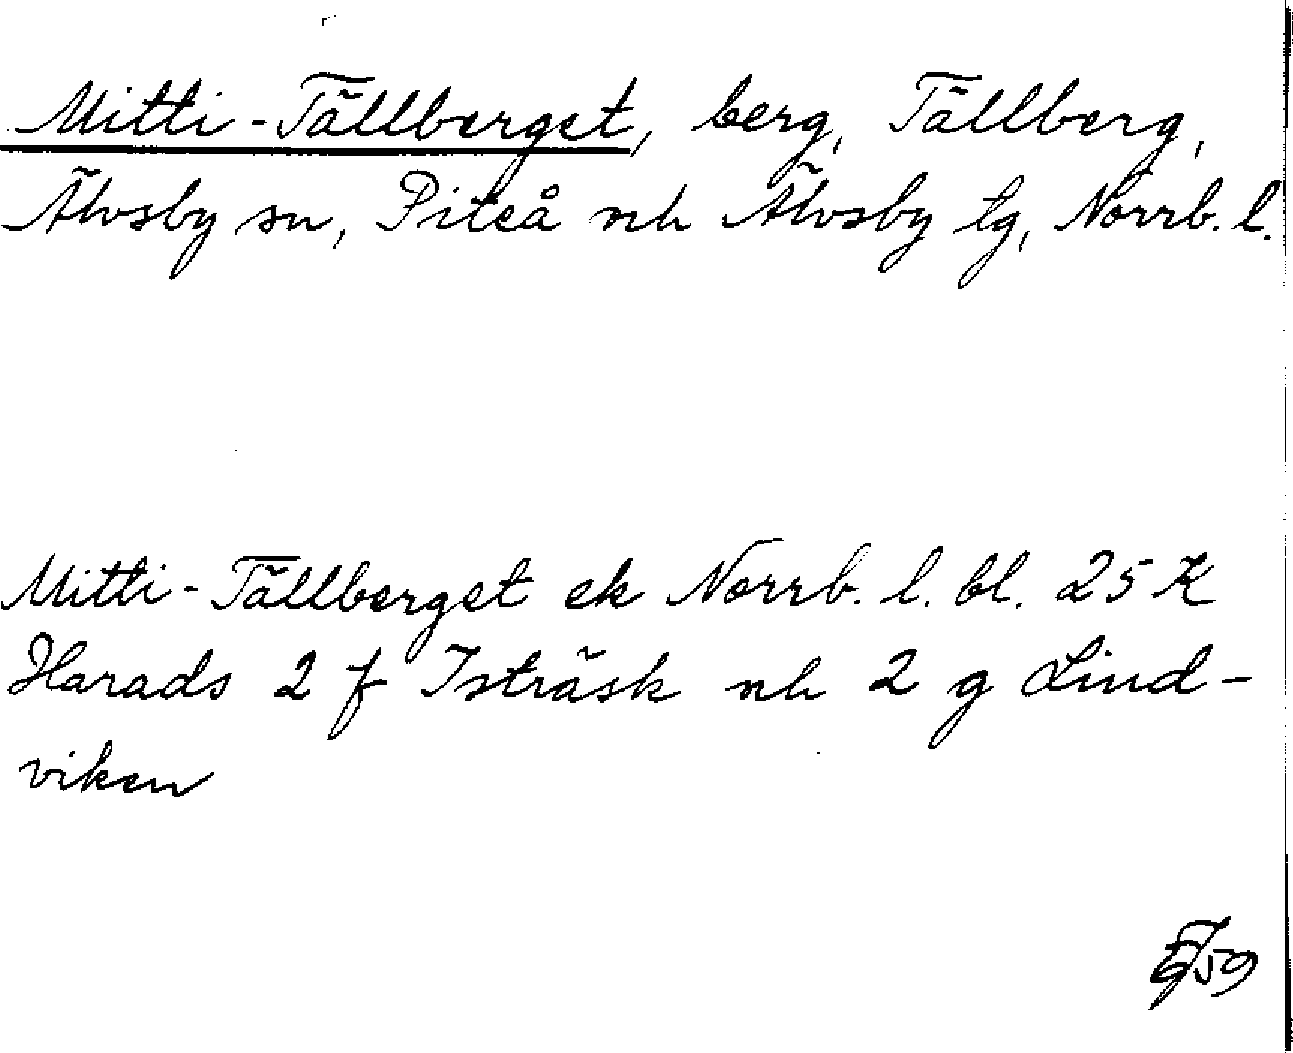 Mitti-Tällberget, berg, Tällberg,
Älvsby sn, Piteå nh Älvsby tg, Norrb. l.
Mitti-Tällberget ek Norrb. l. bl. 25 K
Harads 2 f Isträsk nh 2 g Lind-
viken
59